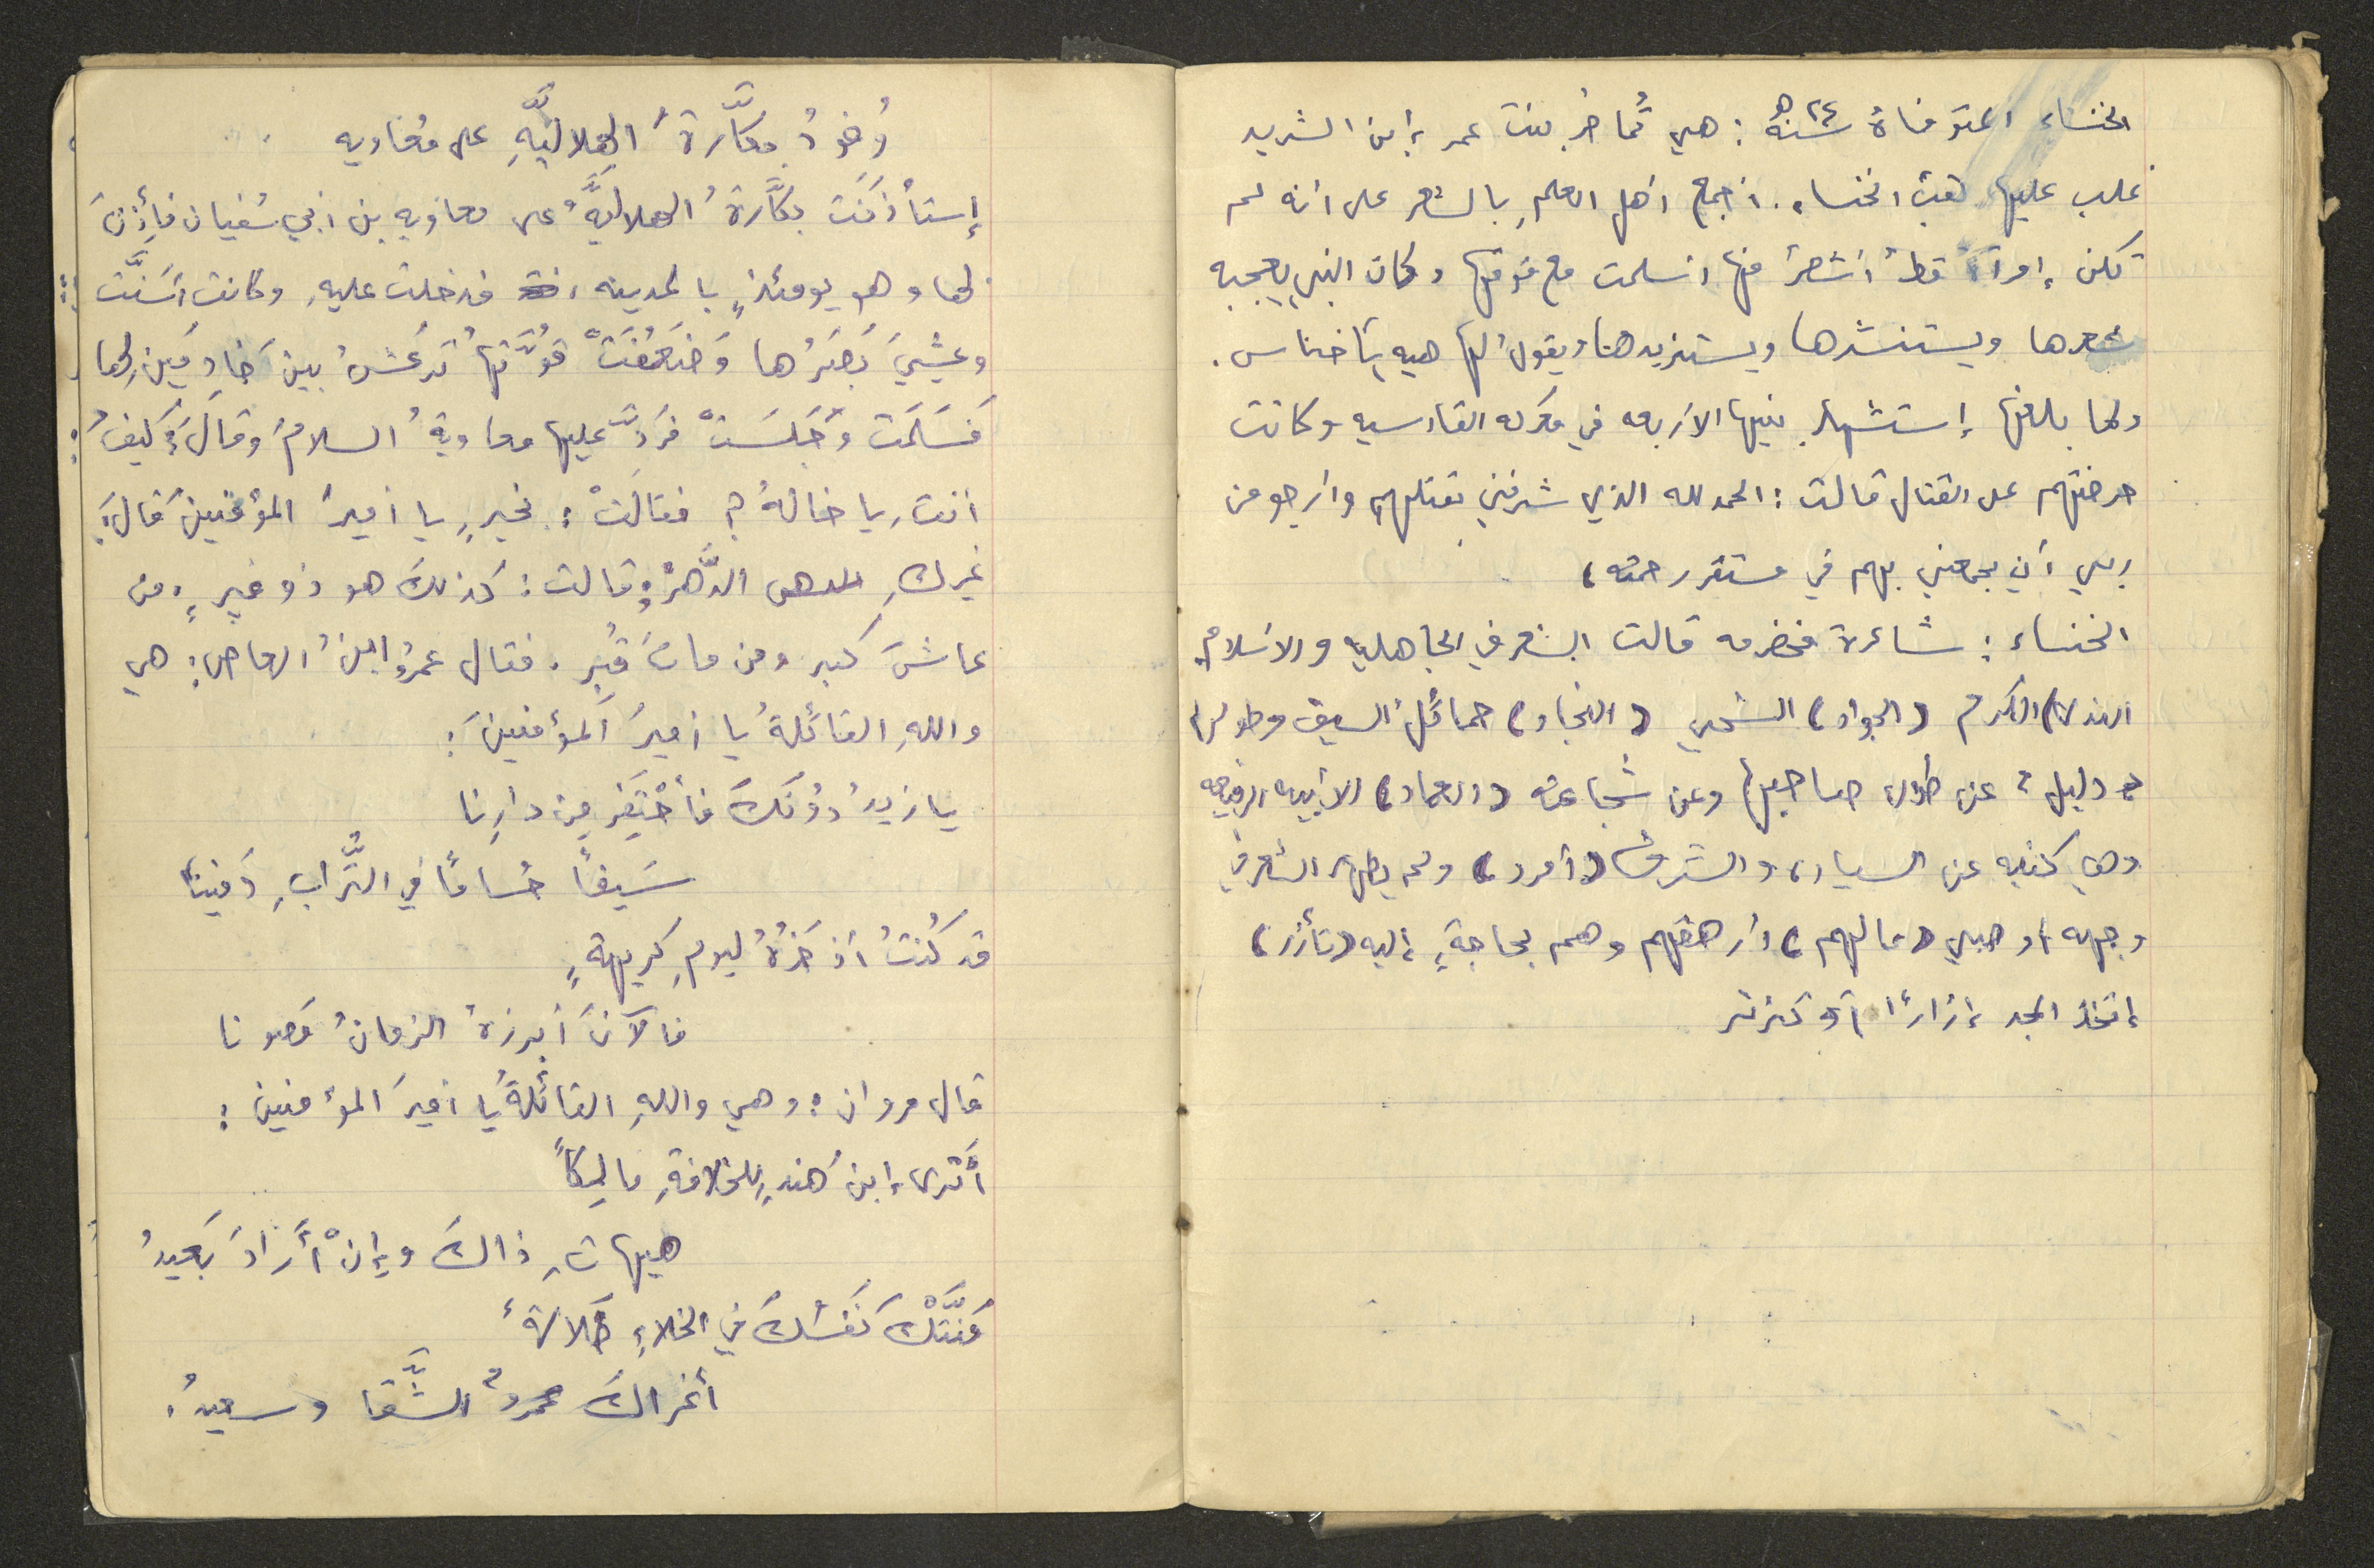 الخنساء المتوفاةُ سنة ٢٤ ه : هي تُماضر بنت عمر إبن الشريد
غلب عليها لقب الخنساء. اجمع اهل العلمِ بالشعر على انه لم
تكن إمرأةٌ قطُ أشعرُ منها اسلمت مع قومها وكان النبي يعجبه
شعرها ويستنشدها ويستزيدها ويقولُ لها هيه يا خناس.
ولما بلغها إستشهاد بنيها الاربعه في معركه القادسيه وكانت
حرضتهم على القتال قالت : الحمد لله الذي شرفني بقتلهم وارجو من
ربي أن يجمعني بهم في مستقر رحمته،
الخنساء : شاعرة مخضرمه قالت الشعر في الجاهليه والاسلام
الندى) الكرم (الجواد) السخي (النجاد) حمائلُ السيف وطولها
دليل عن طول صاحبها وعن شجاعته (العماد) الابنيه الرفيعه
وهي كنايه عن السياده والشرف (أمرد) ولم يظهر الشعر في
وجهه او صبي (عالهم) ارهقهم وهم بحاجةٍ إليه (تأزر)
إتخذ المجد إزاراً أو تستر
وُفودُ بكَّارةُ الهلاليَّةِ على معاويه
إستأذَنَت بكَّارةُ الهلاليَّةُ على معاويه بن ابي سُفيان فأِذنَ
لها وهو يومئذٍ بالمدينه، فدخلت عليهِ وكانت اسَنَّت
وعَشِيَ بَصَرُها وَضَعُفَتْ قوُّتها تَرعَشُ بينَ خادِمَينِ لها
فَسَلَمَت وَجَلَسَتْ فرَدَّ عليها معاويةُ السلامُ وَقالَ : كَيفَ
انت يا خالةُ ؟ فقالَتْ : بخيرٍ يا اميرَ المؤمنينَ قالَ :
غيركِ الدَّهرُ ; قالت : كذلكَ هو ذو غيرٍ ; من
عاشَ كبر ومن ماتَ قُبِر. فقال عمرُو ابنُ العاص : هي
واللهِ القائلةُ يا اميرَ المؤمنينَ :
يا زيدُ دوُنَكَ فأحْتَفِر مِن دارِنا
سَيفاً حُساماً في التُّرابِ دَفينا
قد كُنتُ أذخَرُهُ ليومِ كريهةٍ
فالآنَ أبرزهُ الزمانُ مَصونا
قال مروان : وهي واللهِ القائلةُ يا اميرَ المؤمنين :
أَترى إبن هندٍ للخلافةِ مالِكاً
هيهاتِ ذاكَ وإنْ أرَادَ بَعيدُ
مَنَّتْكَ نَفسُكَ في الخلاءِ ضَلالةً
أغراكَ عمرو الشَّقا وسعيدُ.